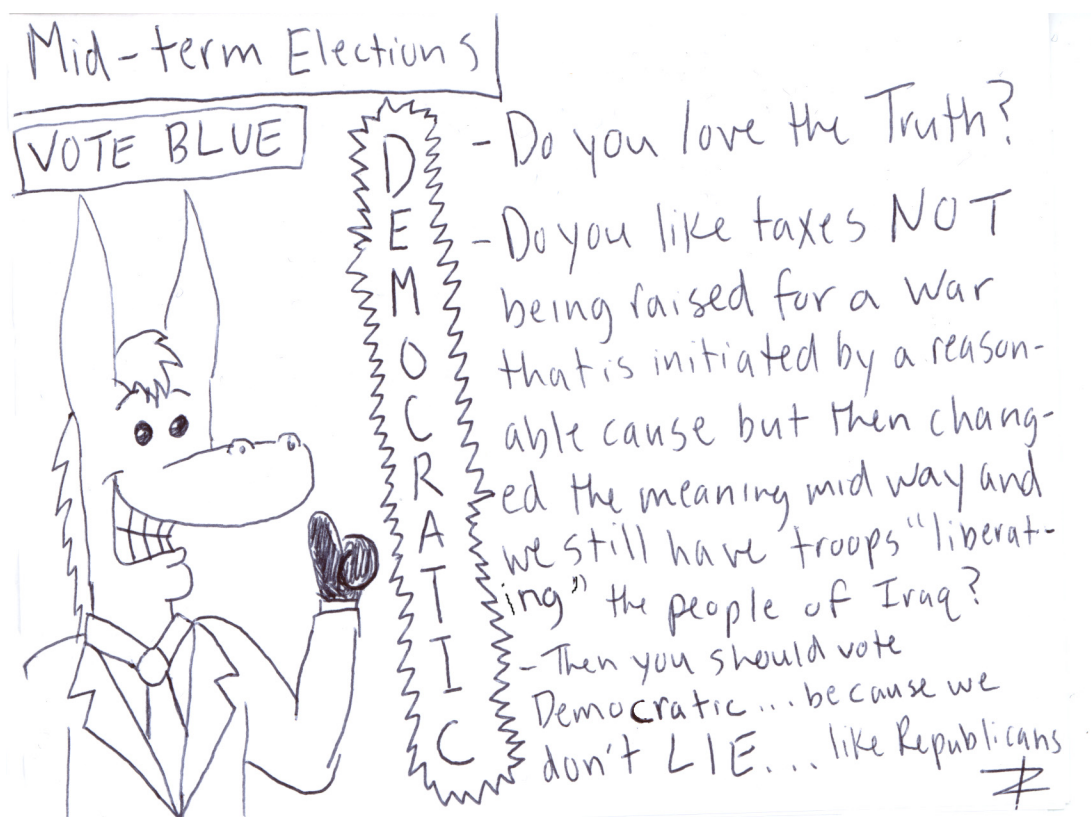 Mid-term Elections
VOTE BLUE
DEMOCRATIC
- Do you love the Truth?
- Do you like taxes NOT
being raised for a war
that is initiated by a reason-
able cause but then chang-
ed the meaning mid way and
we still have troops "liberat-
ing" the people of Iraq?
- Then you should vote
Democratic... because we
don't LIE... like Republicans